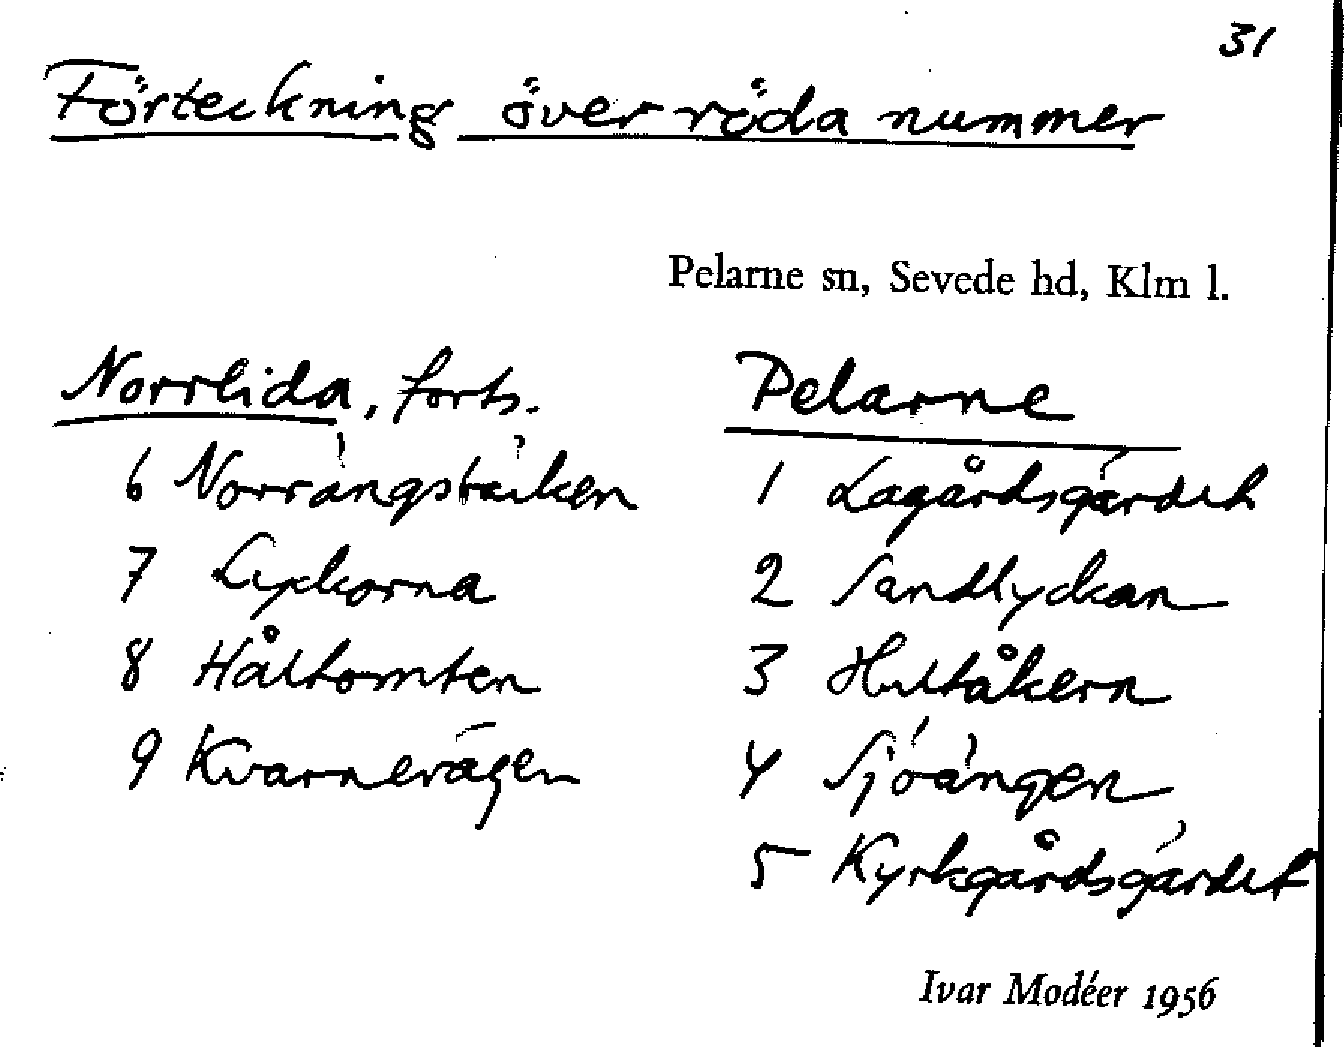 31
Förteckning över röda nummer
Pelarne sn, Sevede hd, Klm l.
Norrlida, forts.
6 Norrängsbäcken
7 Lyckorna
8 Håltomten
9 Kvarnevägen
Pelarne
1 Lagårdsgärdet
2 Sandlyckan
3 Hultåkern
4 Sjöängen
5 Kyrkgårdsgärdet
Ivar Modéer 1956